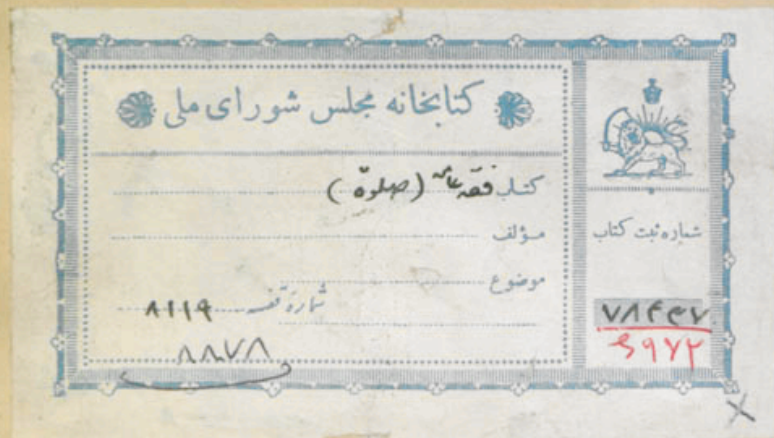 کتابخانه مجلس شورای ملی
کتاب فقه عامه (صلوة)
مؤلف
موضوع
شماره قفسه ۸۱۱۹
۸۸۷۸
شماره ثبت کتاب
۷۸۴۳۷